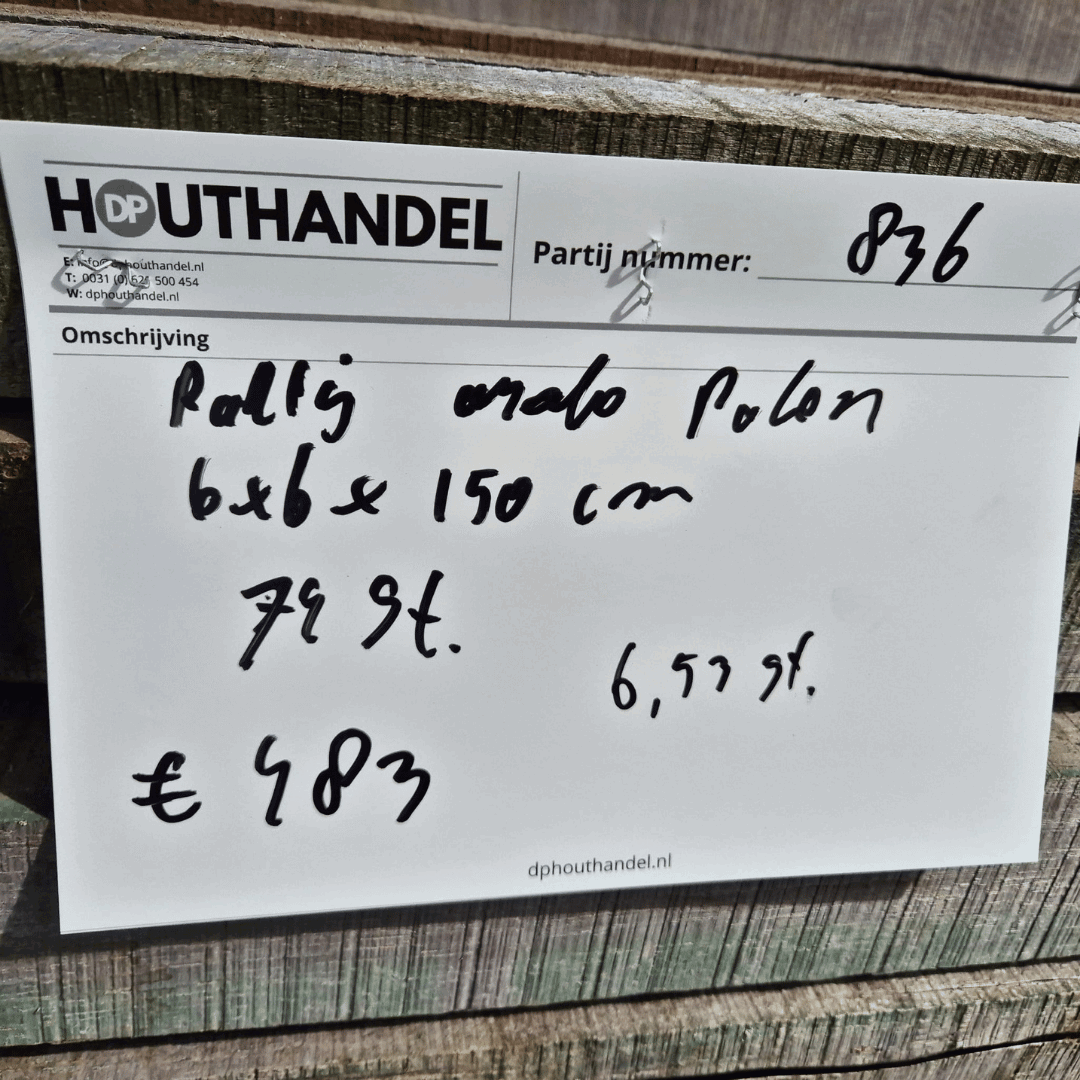 HOUTHANDEL
DP
E: info@dphouthandel.nl
T: 0031 (0) 500 454
W: dphouthandel.nl
Partij nummer: 836
Omschrijving
Partij Palen
6x6x 150 cm
74 st.
6,53 st.
€ 483
dphouthandel.nl